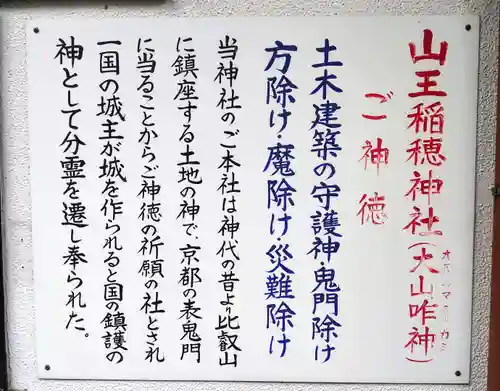 山王稲穂神社（大山咋神）
オオヤマクイノカミ
ご神徳
土木建築の守護神鬼門除け
方除け・魔除け・災難除け
当神社のご本社は神代の昔より比叡山
に鎮座する土地の神で、京都の表鬼門
に当ることからご神徳の祈願の社とされ
一国の城主が城を作られると国の鎮護の
神として分霊を遷し奉られた。